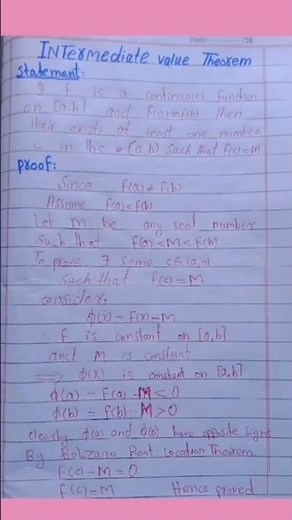 INTermediate value Theorem
Statement:
If F is a continuous function
on [a,b] and F(a)≠F(b) then
their exists at least one number
c in the (a,b) such that F(c)=M
proof:
Since F(a)≠F(b)
Assume F(a)<F(b)
Let M be any real number
such that F(a)<M<F(b)
To prove ∃ some c∈(a,b)
such that f(c)=M
consider,
ϕ(x)=F(x)-M
∴ F is constant on [a,b]
and M is constant
⟹ ϕ(x) is constant on [a,b]
ϕ(a) = F(a)-M<0
ϕ(b) = F(b)-M>0
clearly ϕ(a) and ϕ(b) have opposite signs
By Bolzano Root Location Theorem
F(c)-M=0
F(c)=M Hence proved